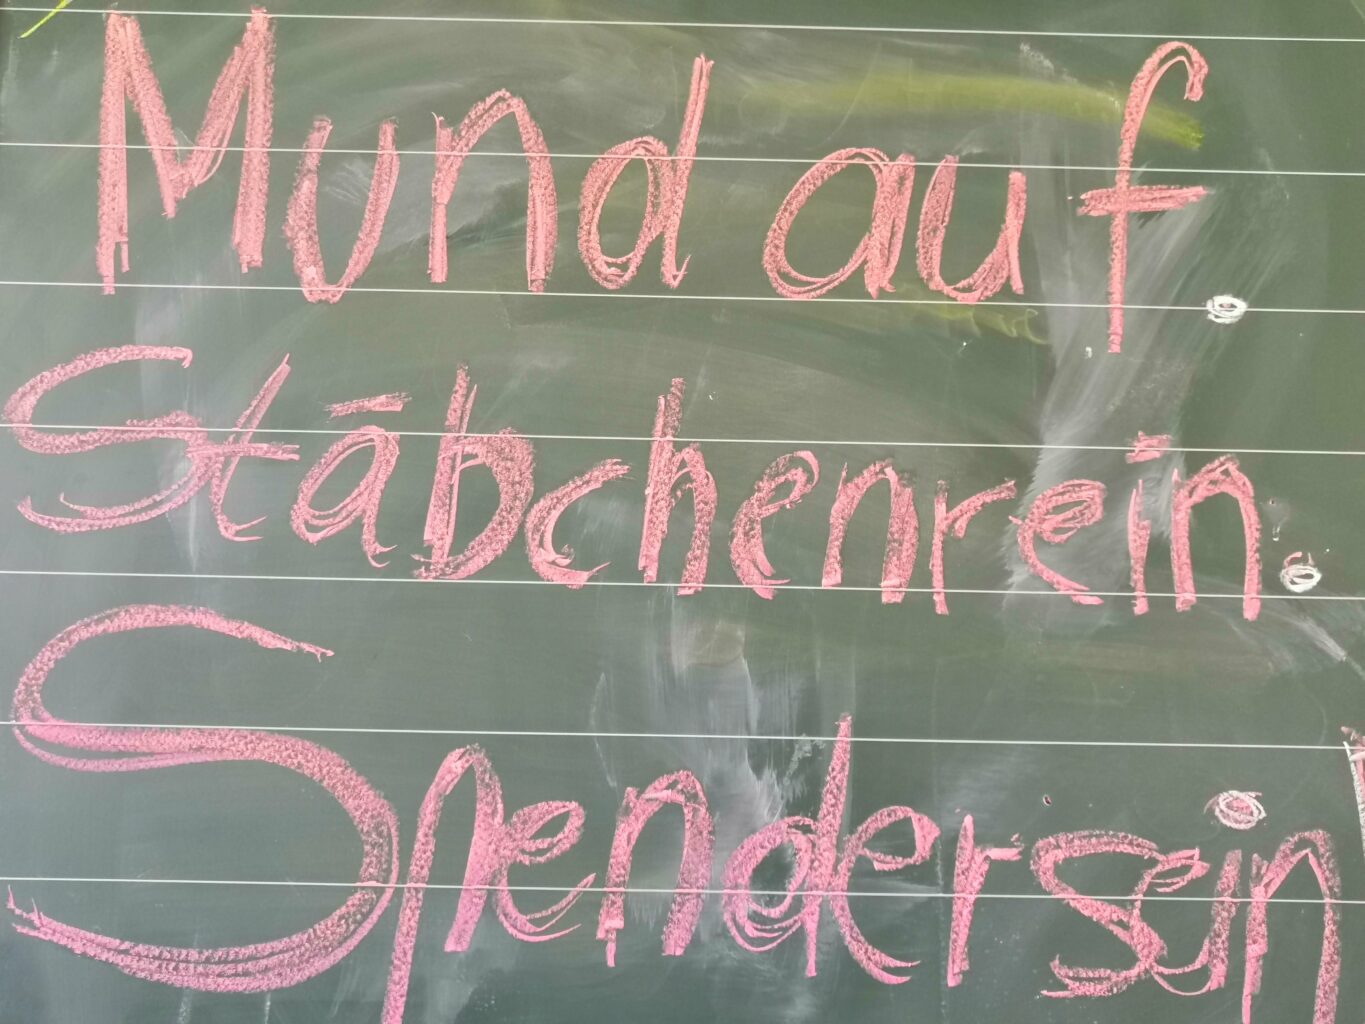 Mund auf.
Stäbchen rein.
Spender sein